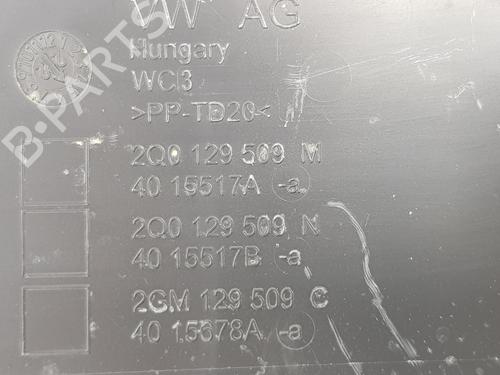 VW AG
Hungary
WCI3
>PP-TD20<
2Q0 129 509 M
40 15517A -a
2Q0 129 509 N
40 15517B -a
2GM 129 509 C
40 15678A -a
B-PARTS